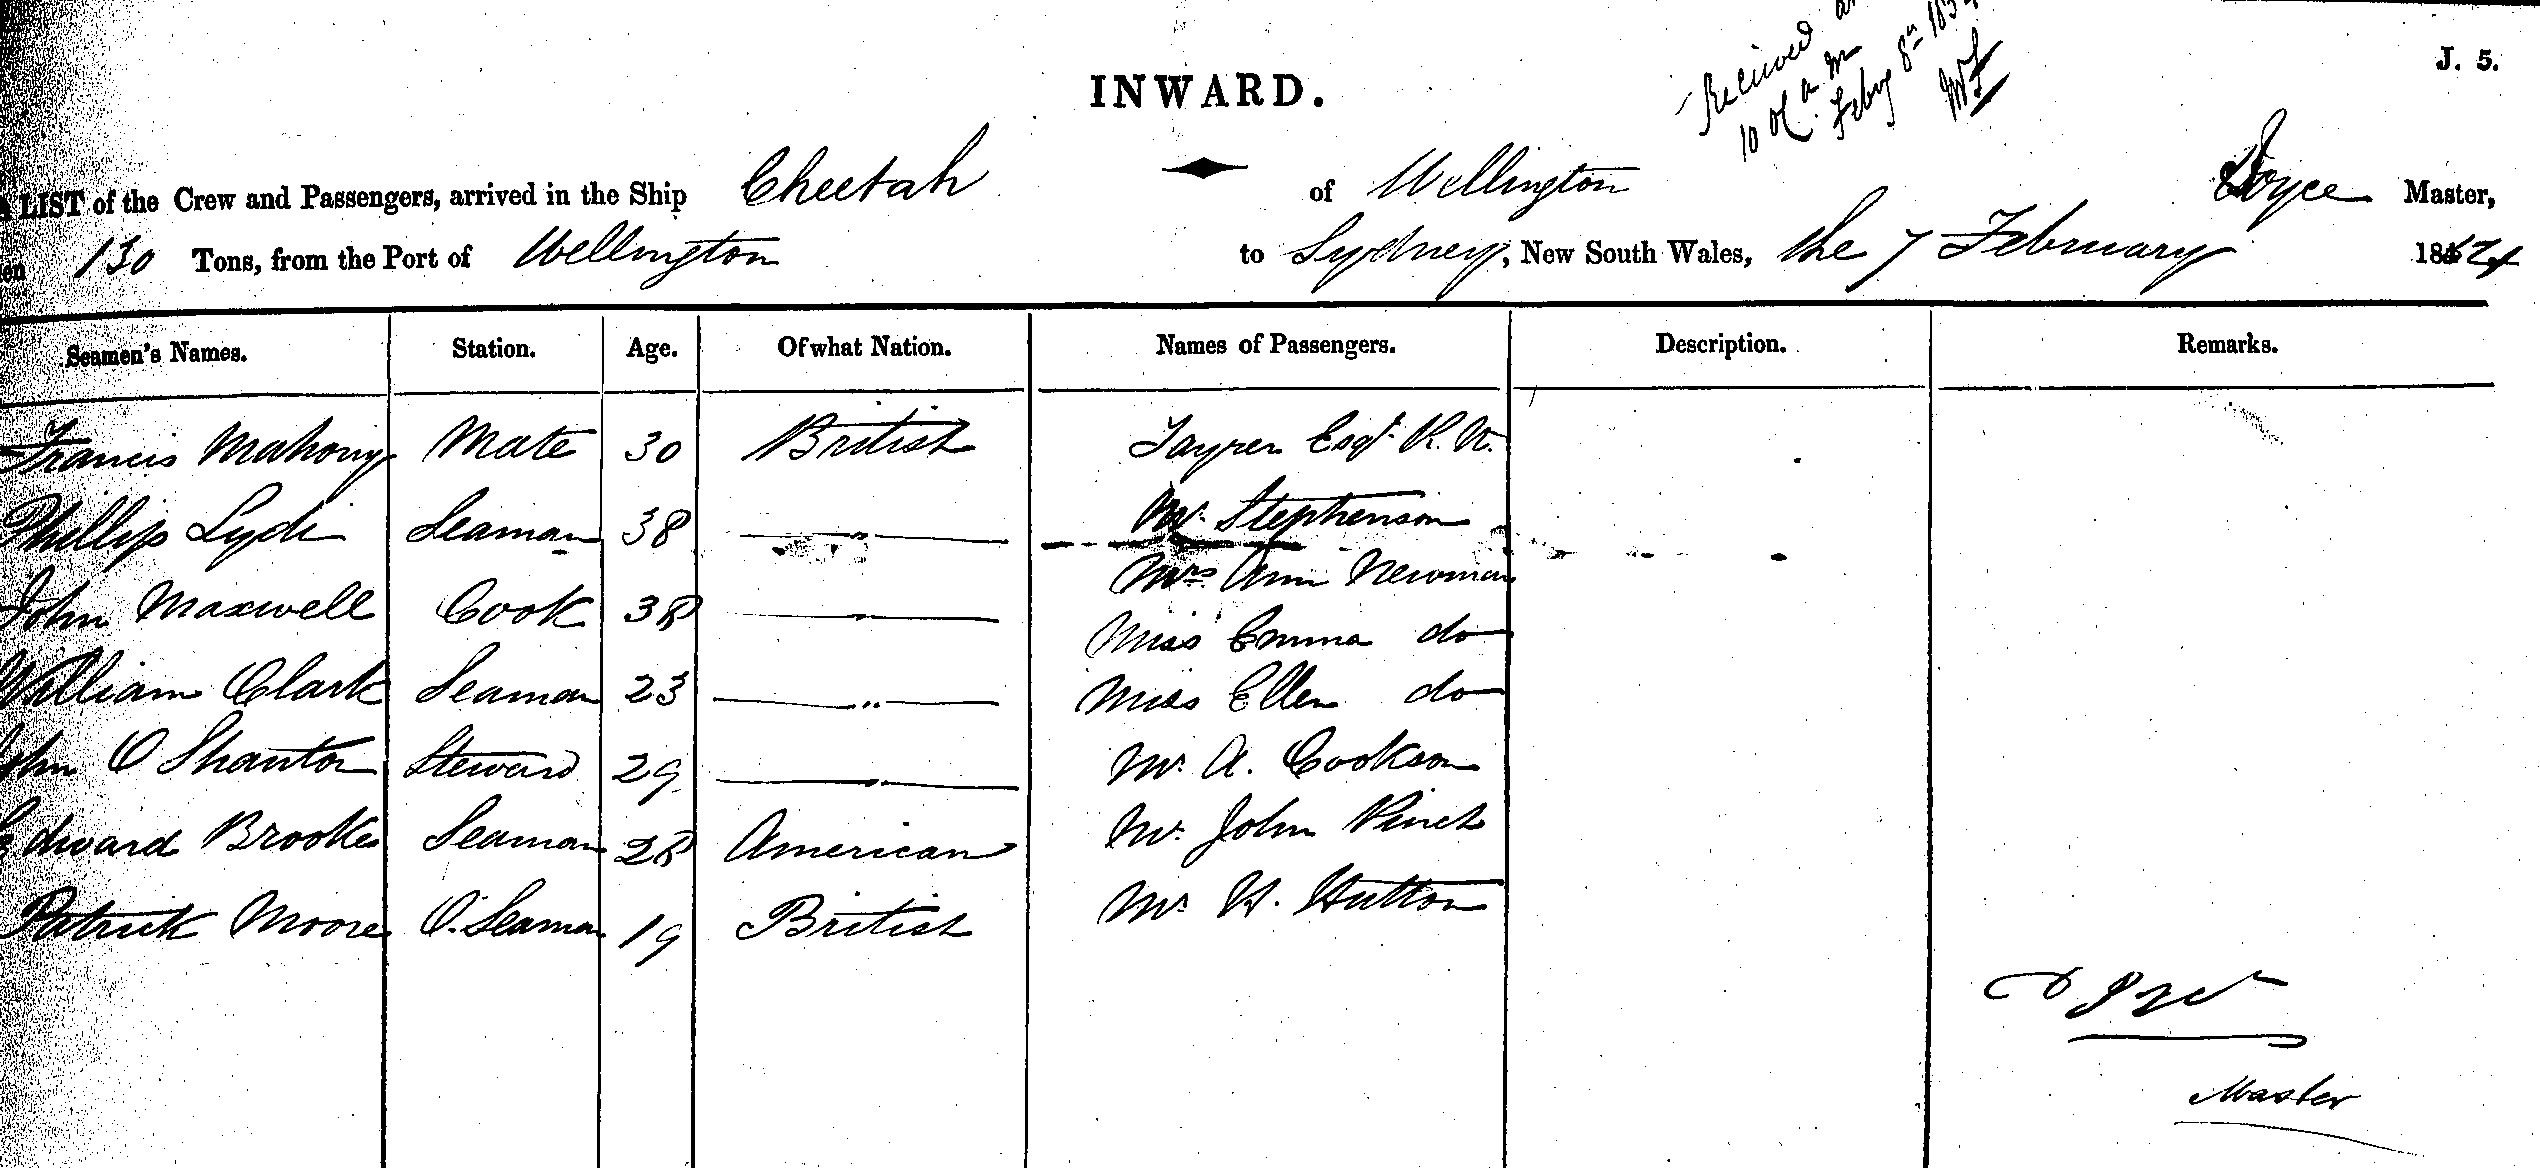 Received
10 Oc. a m
Feby 8th
J. 5.
INWARD.
LIST of the Crew and Passengers, arrived in the Ship Cheetah of Wellington Boyce Master,
130 Tons, from the Port of Wellington to Sydney, New South Wales, the 7 February 18
Seamen's Names. Station. Age. Of what Nation. Names of Passengers. Description. Remarks.
Francis Mahony Mate 30 British Esqr. R. N.
Phillip Lydi Seaman 38 — " — Mr. Stephenson
John Maxwell Cook 38 — " — Mrs Ann Newman
Miss Emma do
William Clark Seaman 23 — " — Miss Ellen do
John O Shanton Steward 29 — " — Mr. A. Cookson
Edward Brookes Seaman 28 American Mr. John Pinch
Patrick Moore O. Seaman 19 British Mr H. Hutton
Master